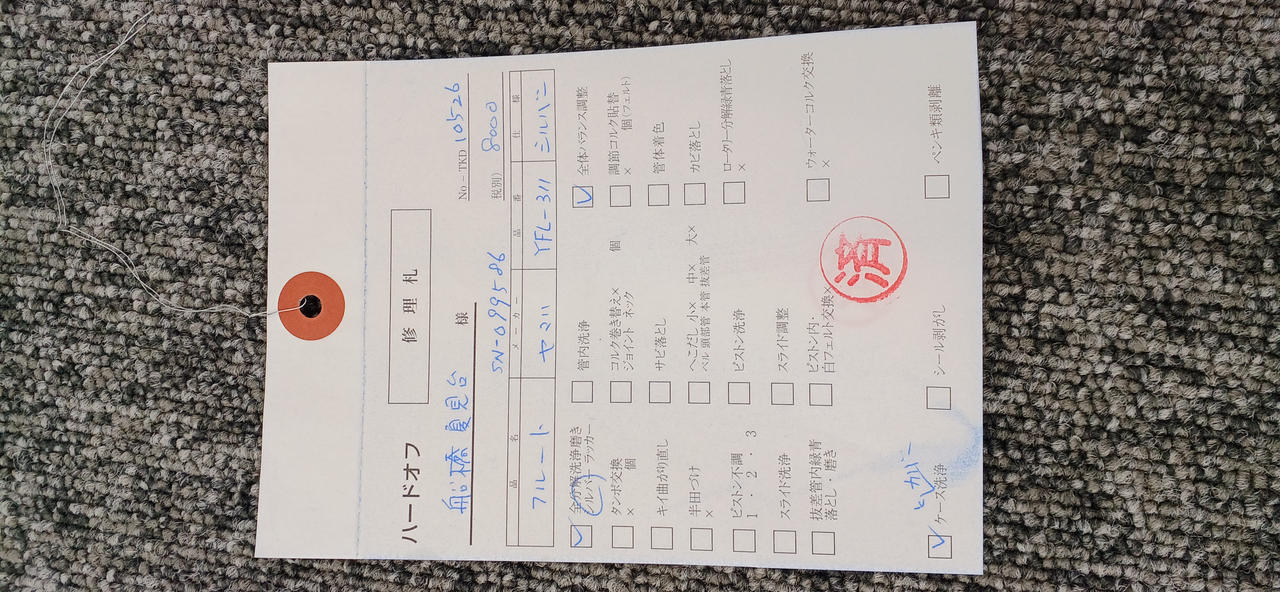 修理札
ハードオフ
船橋夏見台 様
No－TKD 10526
SN-099586
税別) 8000
品名 メーカー 品番 仕様
フルート ヤマハ YFL-311 シルバー
全分解洗浄磨き シルバー ラッカー
管内洗浄
全体バランス調整
タンポ交換 × 個
コルク巻き替え× 個 ジョイント ネック
調節コルク貼替 × 個(フェルト)
キィ曲がり直し
サビ落とし
管体着色
半田づけ ×
へこだし 小× 中× 大× ベル 頭部管 本管 抜差管
カビ落とし
ピストン不調 1・2・3
ピストン洗浄
ロータリー分解緑青落とし ×
スライド洗浄
スライド調整
抜差管内緑青落とし・磨き
ピストン内・白フェルト交換×
ウォーターコルク交換 ×
済
ケース洗浄 とカバー
シール剥がし
ペンキ類剥離